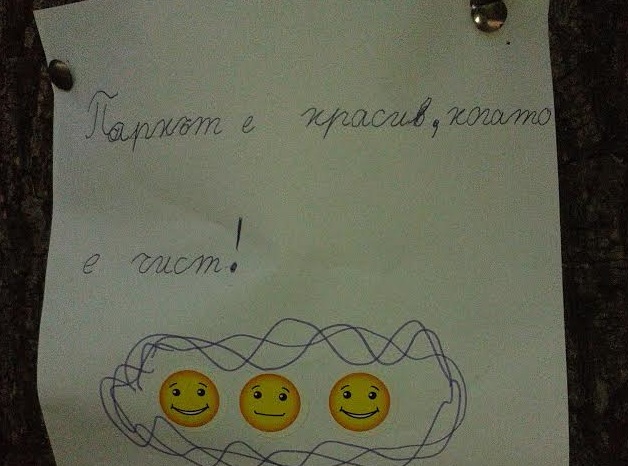 Паркът е красив, когато
е чист!